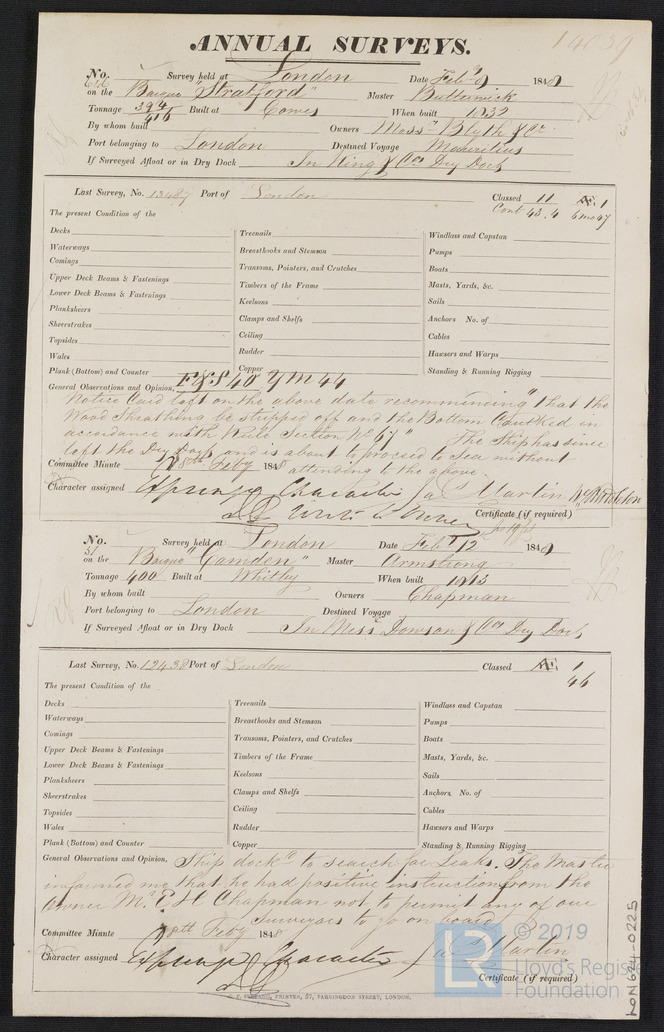 14039
ANNUAL SURVEYS.
No. Survey held at London Date Feb 9 1848
on the Barque "Stratford" Master Butterwick
Tonnage 394/416 Built at Cowes When built 1832
By whom built Owners Mess Blyth & Co
Port belonging to London Destined Voyage Mauritius
If Surveyed Afloat or in Dry Dock In King & Cos Dry Dock
Last Survey, No. 13487 Port of London Classed 11 Æ.1
Cont 43.4 6mo47
The present Condition of the
Decks Treenails Windlass and Capstan
Waterways Breasthooks and Stemson Pumps
Comings Transoms, Pointers, and Crutches Boats
Upper Deck Beams & Fastenings Timbers of the Frame Masts, Yards, &c.
Lower Deck Beams & Fastenings Keelsons Sails
Planksheers Clamps and Shelfs Anchors No. of
Sheerstrakes Ceiling Cables
Topsides Rudder Hawsers and Warps
Wales Copper Standing & Running Rigging
Plank (Bottom) and Counter
General Observations and Opinion,
Notice Card left on the above date recommending "that the
Wood Sheathing be stripped off and the Bottom Caulked in
accordance with Rule Section No 67" The Ship has since
left the Dry Dock and is about to proceed to Sea without
attending to the above.
Committee Minute 18th Feby 1848
Character assigned Expunge Character Martin
Certificate (if required)
No. 51 Survey held at London Date Feb 12 1848
on the Barque "Camden" Master Armstrong
Tonnage 400 Built at Whitby When built 1813
By whom built Owners Chapman
Port belonging to London Destined Voyage
If Surveyed Afloat or in Dry Dock In Mess Dowson & Cos Dry Dock
Last Survey, No. 12438 Port of London Classed Æ 1
46
The present Condition of the
Decks Treenails Windlass and Capstan
Waterways Breasthooks and Stemson Pumps
Comings Transoms, Pointers, and Crutches Boats
Upper Deck Beams & Fastenings Timbers of the Frame Masts, Yards, &c.
Lower Deck Beams & Fastenings Keelsons Sails
Planksheers Clamps and Shelfs Anchors, No. of
Sheerstrakes Ceiling Cables
Topsides Rudder Hawsers and Warps
Wales Copper Standing & Running Rigging
Plank (Bottom) and Counter
General Observations and Opinion, Ship dockd to search for Leaks. The Master
informed me that he had positive instructions from the
Owner Mr. E H Chapman not to permit any of our
Surveyors to go on board
Committee Minute Feby 1848
Character assigned Expunge Character Martin
Certificate (if required)
PRINTER, 57, FARRINGDON STREET, LONDON.
© 2019
LR
Lloyd's Register
Foundation
LON 624-0225